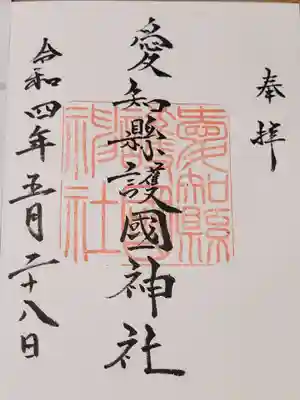 奉拝
愛知縣護國神社
愛知縣護國神社
令和四年五月二十八日